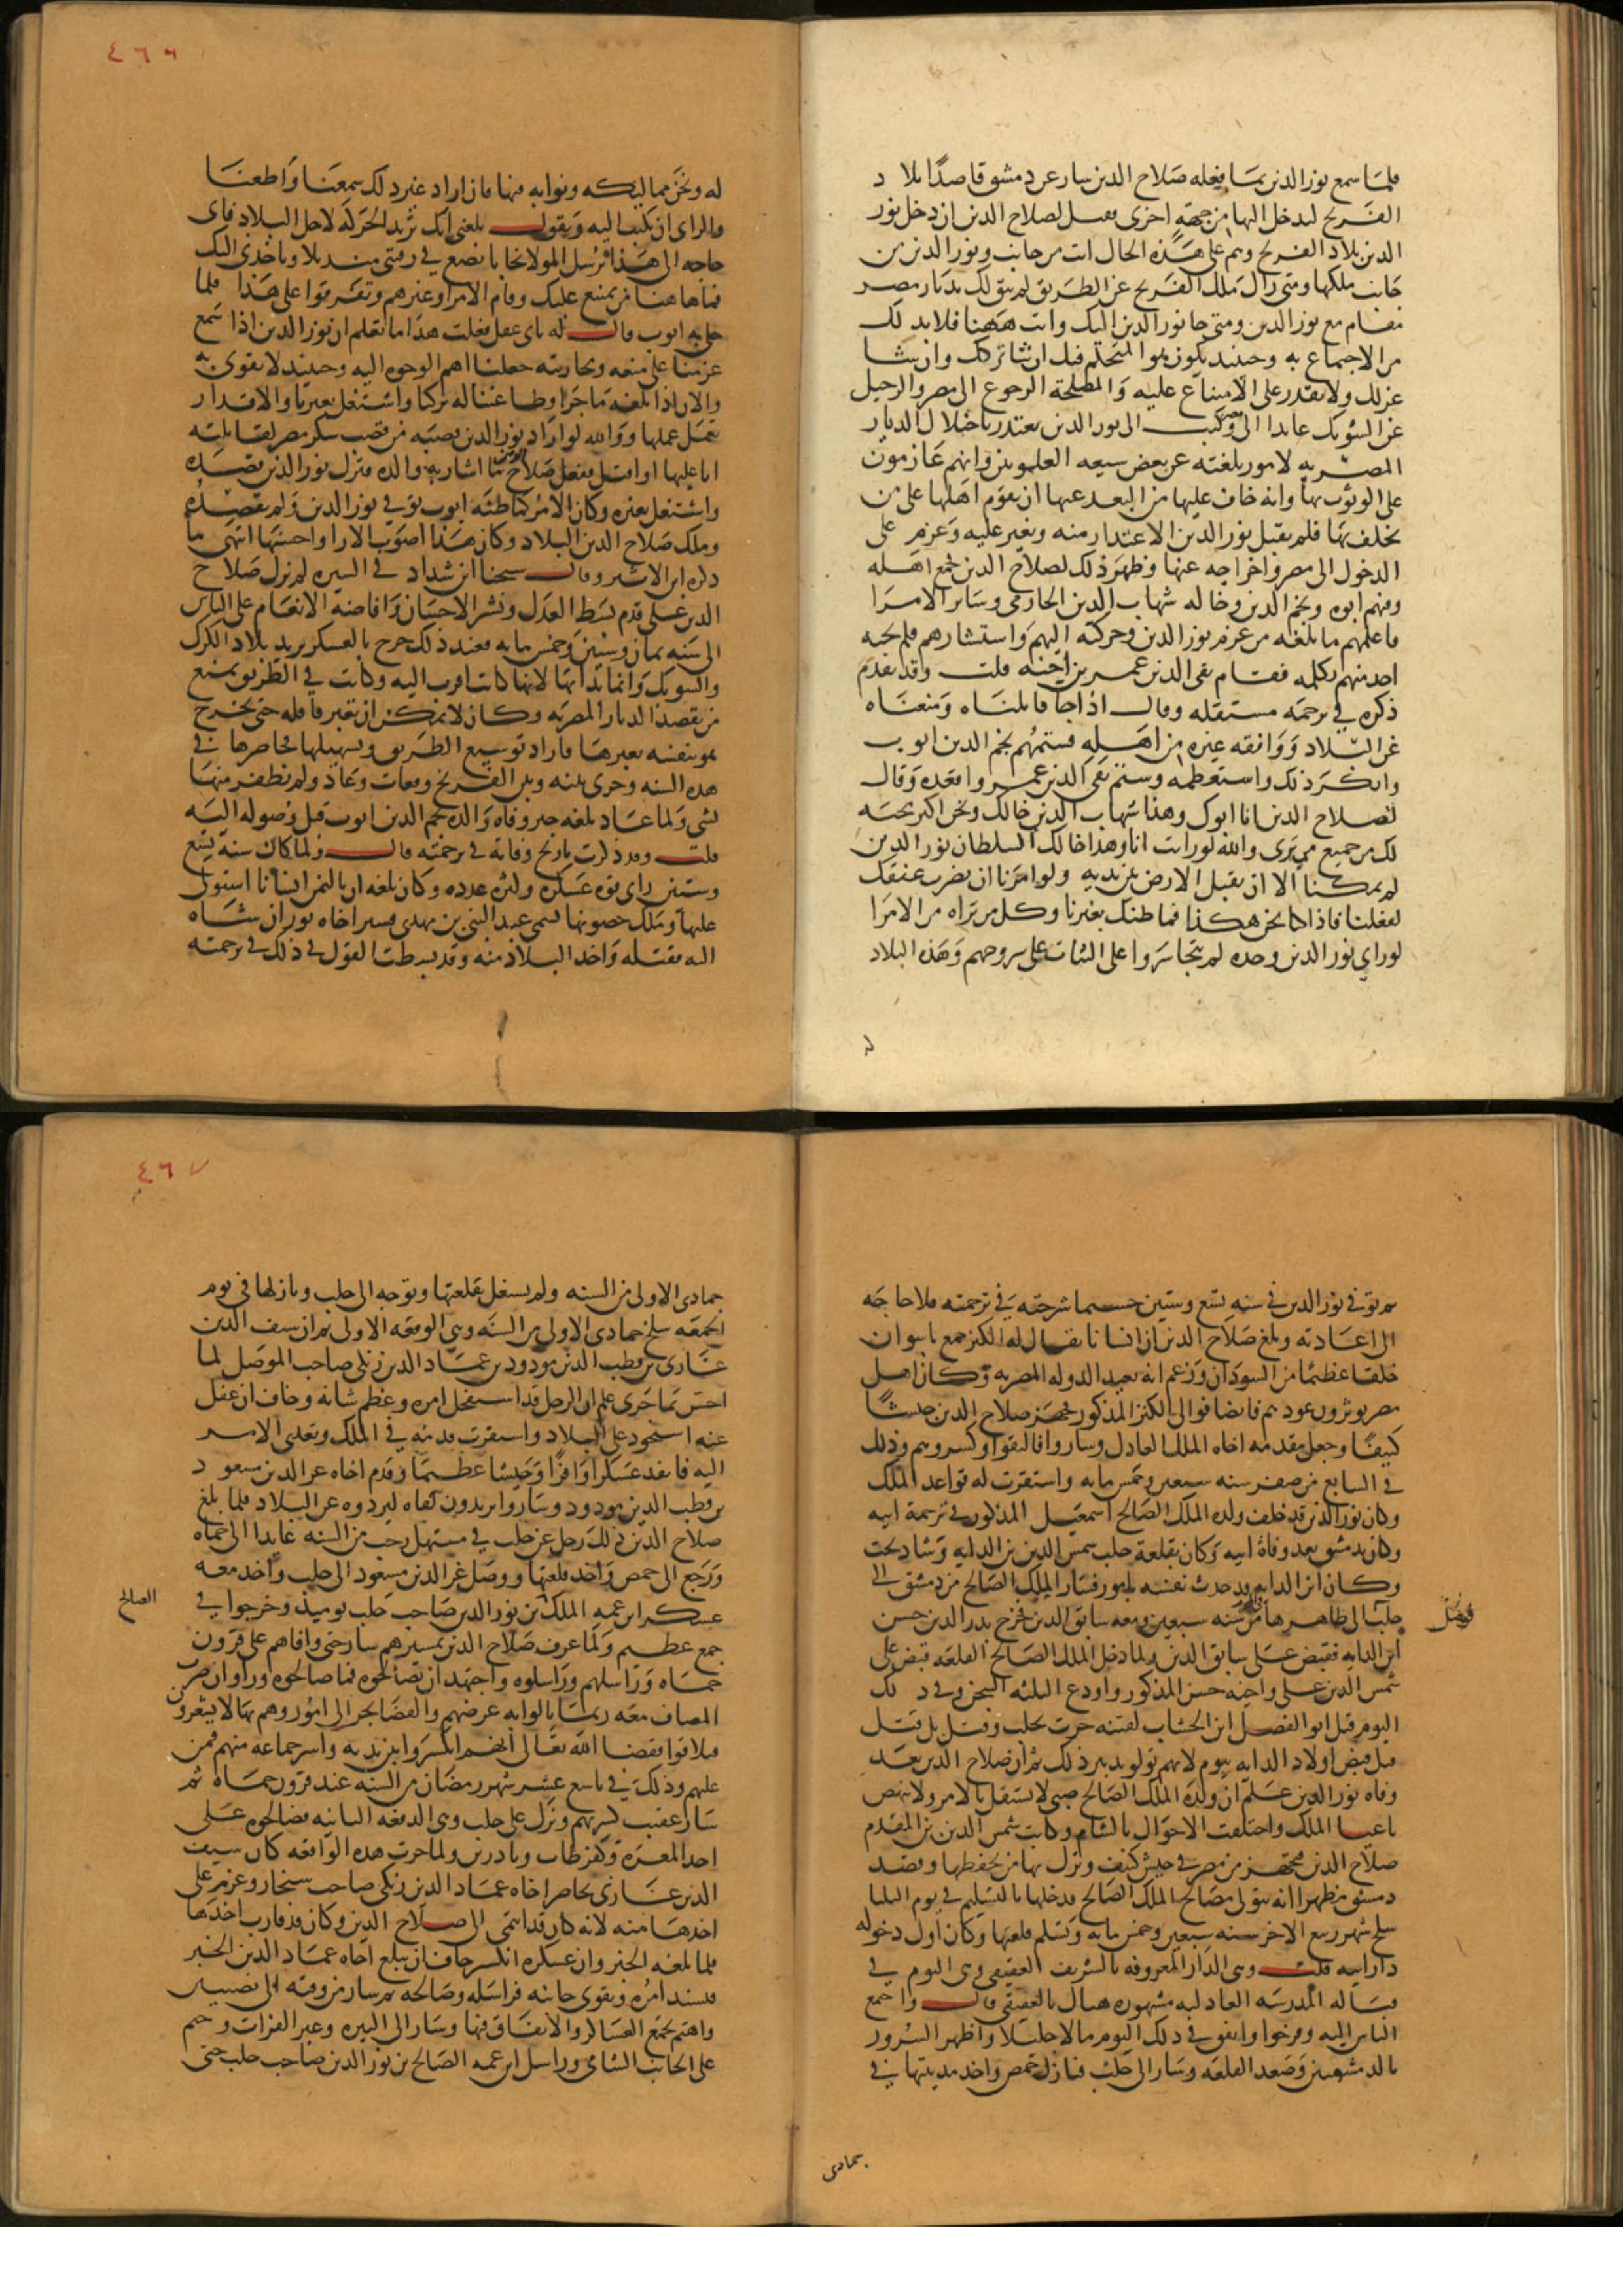 فلما سمع نور الدين بما فعله صلاح الدين سار عن دمشق قاصدا بلاد
الفرنج ليدخل اليها من جهة اخرى فقيل لصلاح الدين ان دخل نور
الدين بلاد الفرنج وهم على هذه الحال انت من جانب ونور الدين من
جانب ملكها ومتى زال ملك الفرنج عن الطريق لم يبق لك بديار مصر
مقام مع نور الدين ومتى جا نور الدين اليك وانت ههنا فلا بد لك
من الاجتماع به وحينيذ يكون هو المتحكم فيك ان شا تركك وان شا
عزلك ولا تقدر على الامتناع عليه والمصلحة الرجوع الى مصر فرحل
عن الشوبك عايدا الى مصر وكتب الى نور الدين يعتذر باختلال الديار
المصرية لامور بلغته عن بعض شيعه العلويين وانهم عازمون
على الوثوب بها وانه خاف عليها من البعد عنها ان يقوم اهلها على من
تخلف بها فلم يقبل نور الدين الاعتذار منه وتغير عليه وعزم على
الدخول الى مصر واخراجه عنها وظهر ذلك لصلاح الدين فجمع اهله
ومنهم ابوه ونجم الدين وخاله شهاب الدين الحارمي وساير الامرا
فاعلمهم ما بلغه من عزم نور الدين وحركته اليهم واستشارهم فلم يجبه
احد منهم بكلمه فقام تقي الدين عمر بن اخيه قلت وقد تقدم
ذكره في ترجمه مستقله وقال اذا جا قاتلناه ومنعناه
عن البلاد ووافقه غيره من اهله فشتمهم نجم الدين ايوب
وانكر ذلك واستعظمه وشتم تقي الدين عمر واقعده وقال
لصلاح الدين انا ابوك وهذا شهاب الدين خالك ونحن اكثر محبه
لك من جميع من ترى والله لو رايت انا وهذا خالك السلطان نور الدين
لم يمكنا الا ان نقبل الارض بين يديه ولو امرنا ان نضرب عنقك
لفعلنا فاذا كنا نحن هكذا فما ظنك بغيرنا وكل من تراه من الامرا
لو راي نور الدين وحده لم يتجاسروا على الثبات على سروجهم وهذه البلاد
له
٤٦٦
له ونحن مماليكه ونوابه فيها فان اراد غير ذلك سمعنا واطعنا
والراي ان تكتب اليه وتقول بلغني انك تريد الحركة لاجل البلاد فاي
حاجه الى هذا يرسل المولا نجابا يضع في رقبتي منديلا وياخذني اليك
فما هاهنا من يمتنع عليك وقام الامرا وغيرهم وتفرقوا على هذا فلما
خلا به ايوب قال له باي عقل فعلت هذا اما تعلم ان نور الدين اذا سمع
عزمنا على منعه ومحاربته جعلنا اهم الوجوه اليه وحينيذ لا تقوى به
والان اذا بلغه ما جرا وطاعتنا له تركنا واشتغل بغيرنا والاقدار
تعمل عملها ووالله لو اراد نور الدين قصبه من قصب سكر مصر لقاتلته
انا عليها او اقتل ففعل صلاح الدين ما اشار به والده فترك نور الدين قصده
واشتغل بغيره وكان الامر كما ظنه ايوب توفي نور الدين ولم يقصده
وملك صلاح الدين البلاد وكان هذا اصوب الارا واحسنها انتهى ما
ذكره ابن الاثير وقال شيخنا ابن شداد في السيره لم يزل صلاح
الدين على قدم بسط العدل ونشر الاحسان وافاضة الانعام على الناس
الى سنه ثمان وستين وخمس مايه فعند ذلك خرج بالعسكر يريد بلاد الكرك
والشوبك وانما بدا بها لانها كانت اقرب اليه وكانت في الطريق تمنع
من يقصد الديار المصريه وكان لا يمكن ان تعبر قافله حتى يخرج
هو بنفسه يعبرها فاراد توسيع الطريق وتسهيلها فحاصرها في
هذه السنه وجرى بينه وبين الفرنج وقعات وعاد ولم يظفر منها
بشي ولما عاد بلغه خبر وفاه والده نجم الدين ايوب قبل وصوله اليه
قلت وقد ذكرت تاريخ وفاته في ترجمته قال ولما كان سنة تسع
وستين راى قوه عسكره وكثره عدده وكان بلغه ان باليمن انسانا استولى
عليها وملك حصونها يسمى عبد النبي بن مهدي فسير اخاه توران شاه
اليه فقتله واخذ البلاد منه وقد بسطت القول في ذلك في ترجمته
ثم توفي نور الدين في سنه تسع وستين حسبما شرحته في ترجمته فلا حاجه
الى اعادته وبلغ صلاح الدين ان انسانا يقال له الكنز جمع باسوان
خلقا عظيما من السودان وزعم انه يعيد الدوله المصريه وكان اهل
مصر يوثرون عودهم فانضافوا الى الكنز المذكور فجهز صلاح الدين جيشا
كثيفا وجعل مقدمه اخاه الملك العادل وساروا فالتقوا وكسروهم وذلك
في السابع من صفر سنه سبعين وخمس مايه واستقرت له قواعد الملك
وكان نور الدين قد خلف ولده الملك الصالح اسمعيل المذكور في ترجمة ابيه
وكان بدمشق بعد وفاة ابيه وكان بقلعة حلب شمس الدين بن الدايه وشاذبخت
وكان ابن الدايه قد حدث نفسه بامور فسار الملك الصالح من دمشق الى
حلب فوصل الى ظاهرها من سنه سبعين ومعه سابق الدين فخرج بدر الدين حسن
ابن الدايه فقبض على سابق الدين ولما دخل الملك الصالح القلعه قبض على
شمس الدين علي واخيه حسن المذكور واودع الثلثه السجن وفي ذلك
اليوم قتل ابو الفضل ابن الخشاب لفتنه جرت بحلب وقيل بل قتل
قبل قبض اولاد الدايه بيوم لانهم تولو تدبير ذلك ثم ان صلاح الدين بعد
وفاه نور الدين علم ان ولده الملك الصالح صبي لا يستقل بالامر ولا ينهض
باعبا الملك واختلفت الاحوال بالشام وكاتب شمس الدين بن المقدم
صلاح الدين فتجهز من مصر في جيش كثيف وترك بها من يحفظها وقصد
دمشق مظهرا انه يتولى مصالح الملك الصالح فدخلها بالتسليم في يوم الثلثا
سلخ شهر ربيع الاخر سنه سبعين وخمس مايه وتسلم قلعتها وكان اول دخوله
دار ابيه قلت وهي الدار المعروفه بالشريف العقيقي وهى اليوم في
قباله المدرسه العادليه مشهوره هناك بالعقيقي قال واجتمع
الناس اليه وفرحوا وانفق في ذلك اليوم مالا جليلا واظهر السرور
بالدمشقيين وصعد القلعه وسار الى حلب فنازل حمص واخذ مدينتها في
جمادى
٤٦٧
جمادى الاولى من السنه ولم يشتغل بقلعتها وتوجه الى حلب ونازلها في يوم
الجمعه سلخ جمادى الاولى من السنه وهى الوقعه الاولى ثم ان سيف الدين
غازى بن قطب الدين مودود بن عماد الدين زنكى صاحب الموصل لما
احس بما جرى علم ان الرجل قد استفحل امره وعظم شانه وخاف ان غفل
عنه استحوذ على البلاد واستقرت قدمه في الملك وتعدى الامر
اليه فانفذ عسكرا وافرا وجيشا عظيما وقدم اخاه عز الدين مسعود
بن قطب الدين مودود وساروا يريدون لقاه ليردوه عن البلاد فلما بلغ
صلاح الدين ذلك رحل عن حلب في مستهل رجب من السنه عايدا الى حماه
ورجع الى حمص واخذ قلعتها ووصل عز الدين مسعود الى حلب واخذ معه
عسكر ابن عمه الملك الصالح بن نور الدين صاحب حلب يوميذ وخرجوا في
جمع عظيم ولما عرف صلاح الدين بمسيرهم سار حتى وافاهم على قرون
حماه وراسلهم وراسلوه واجتهد ان يصالحوه فما صالحوه وراوا ان ضرب
المصاف معه ربما نالوا به غرضهم والقضا يجر الى امور وهم بها لا يشعرون
فتلاقوا فقضا الله تعالى انهم انكسروا بين يديه واسر جماعه منهم فمن
عليهم وذلك في تاسع عشر شهر رمضان من السنه عند قرون حماه ثم
سار عقيب كسرتهم ونزل على حلب وهى الدفعه الثانيه فصالحوه على
اخذ المعرة وكفرطاب وبارين ولما جرت هذه الواقعه كان سيف
الدين غازى محاصرا اخاه عماد الدين زنكى صاحب سنجار وعزم على
اخذها منه لانه كان قد انتمى الى صلاح الدين وكان قد قارب اخذها
فلما بلغه الخبر وان عسكره انكسر خاف ان يبلغ اخاه عماد الدين الخبر
فيشتد امره ويقوى جاشه فراسله وصالحه ثم سار من وقته الى نصيبين
واهتم بجمع العساكر والانفاق فيها وسار الى البيره وعبر الفرات وخيم
على الجانب الشامي وراسل ابن عمه الصالح بن نور الدين صاحب حلب حتى